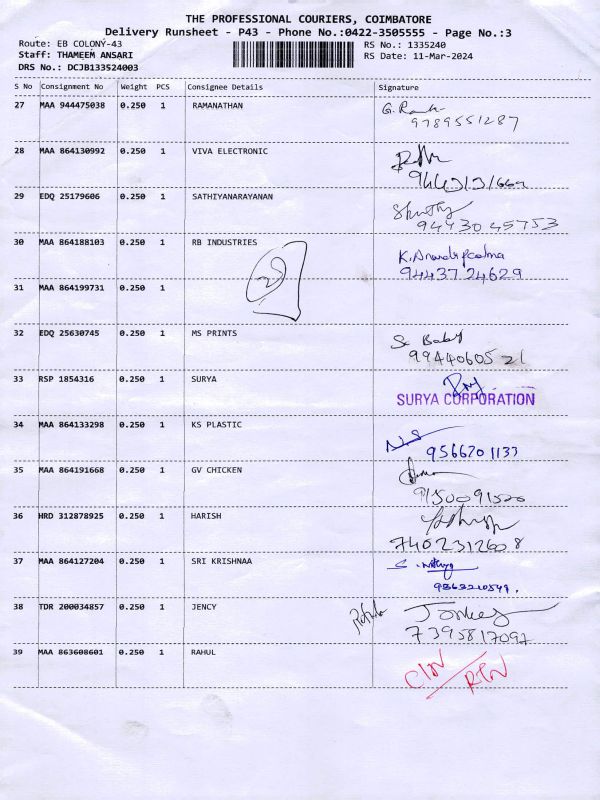 THE PROFESSIONAL COURIERS, COIMBATORE
Delivery Runsheet - P43 - Phone No.:0422-3505555 - Page No.:3
Route: EB COLONY-43 RS No.: 1335240
Staff: THAMEEM ANSARI RS Date: 11-Mar-2024
DRS No.: DCJB133524003
S No Consignment No Weight PCS Consignee Details Signature
27 MAA 944475038 0.250 1 RAMANATHAN
9789551287
28 MAA 864130992 0.250 1 VIVA ELECTRONIC
29 EDQ 25179606 0.250 1 SATHIYANARAYANAN
94430 45753
30 MAA 864188103 0.250 1 RB INDUSTRIES
94437 24629
31 MAA 864199731 0.250 1
32 EDQ 25630745 0.250 1 MS PRINTS Baby
9944060521
33 RSP 1854316 0.250 1 SURYA
SURYA CORPORATION
34 MAA 864133298 0.250 1 KS PLASTIC
9566701133
35 MAA 864191668 0.250 1 GV CHICKEN
9150091520
36 HRD 312878925 0.250 1 HARISH
7402312608
37 MAA 864127204 0.250 1 SRI KRISHNAA
38 TDR 200034857 0.250 1 JENCY
7395817097
39 MAA 863608601 0.250 1 RAHUL